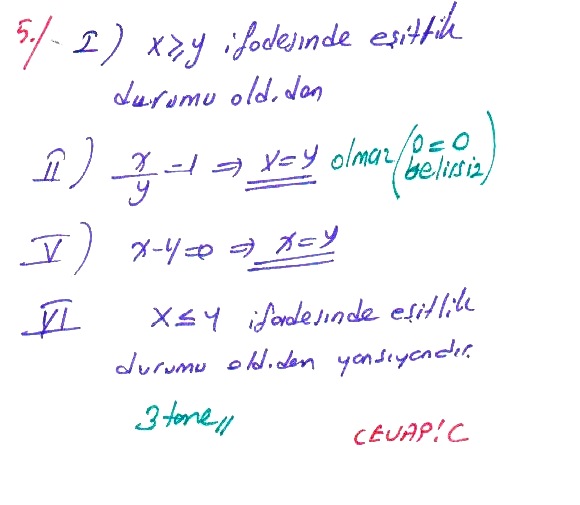 5./- I) x≥y ifadesinde eşitlik
durumu old.dan
II) x/y=1 ⇒ x=y olmaz (0=0 belirsiz)
V) x-y=0 ⇒ x=y
VI x≤y ifadesinde eşitlik
durumu old.dan yansıyandır.
3 tane //
CEVAP: C